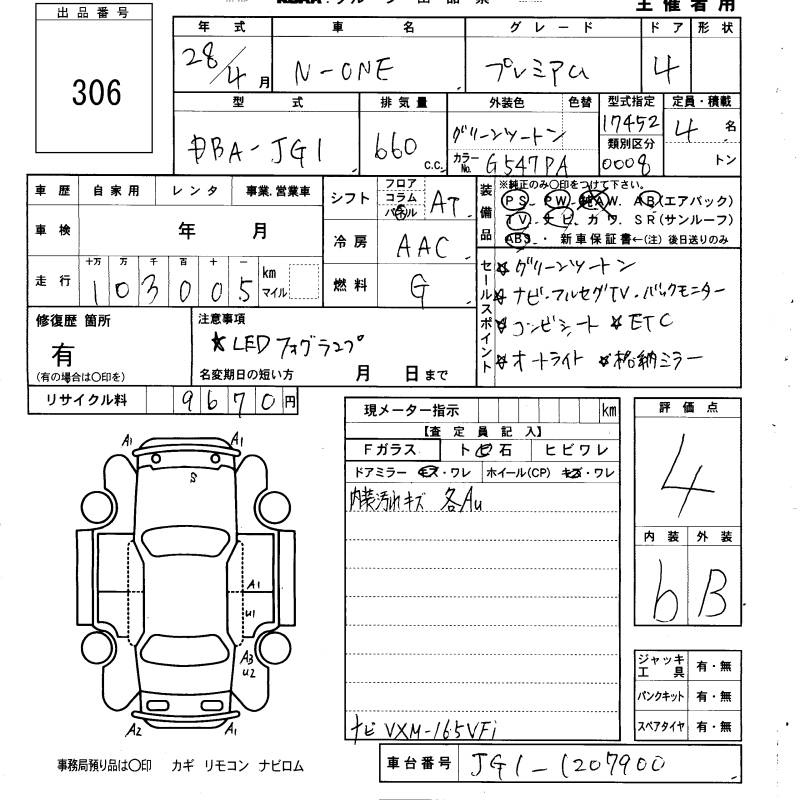 主催者用
出品番号
306
年式 車名 グレード ドア 形状
28/4月 N-ONE プレミアム 4
型式 排気量 外装色 色替 型式指定 定員・積載
DBA-JG1 660 c.c. グリーンツートン 17452 4名
カラーNo. G547PA 類別区分 0008 トン
車歴 自家用 レンタ 事業、営業車
車検 年 月
走行 十万 万 千 百 十 一 km マイル
103005
シフト フロア コラム パネル AT
冷房 AAC
燃料 G
装備品 ※純正のみ〇印をつけて下さい。
PS. PW. 純AW. AB(エアバック)
TV. ナビ. カワ. SR(サンルーフ)
ABS. 新車保証書←(注) 後日送りのみ
セールスポイント
☆グリーンツートン
☆ナビ・フルセグTV・バックモニター
☆コンビシート ☆ETC
☆オートライト ☆格納ミラー
修復歴 箇所
有
(有の場合は〇印を)
注意事項
☆LEDフォグランプ
名変期日の短い方 月 日まで
リサイクル料 9670円
現メーター指示 km
【査定員記入】
Fガラス ト石 ヒビワレ
ドアミラー キズ・ワレ ホイール(CP) キズ・ワレ
内装汚れキズ 各Au
ナビ VXM-165VFi
評価点
4
内装 外装
b B
ジャッキ工具 有・無
パンクキット 有・無
スペアタイヤ 有・無
A1 A1
S
A1
U1
A3
U2
A2 A1
事務局預り品は〇印 カギ リモコン ナビロム
車台番号 JG1-1207900